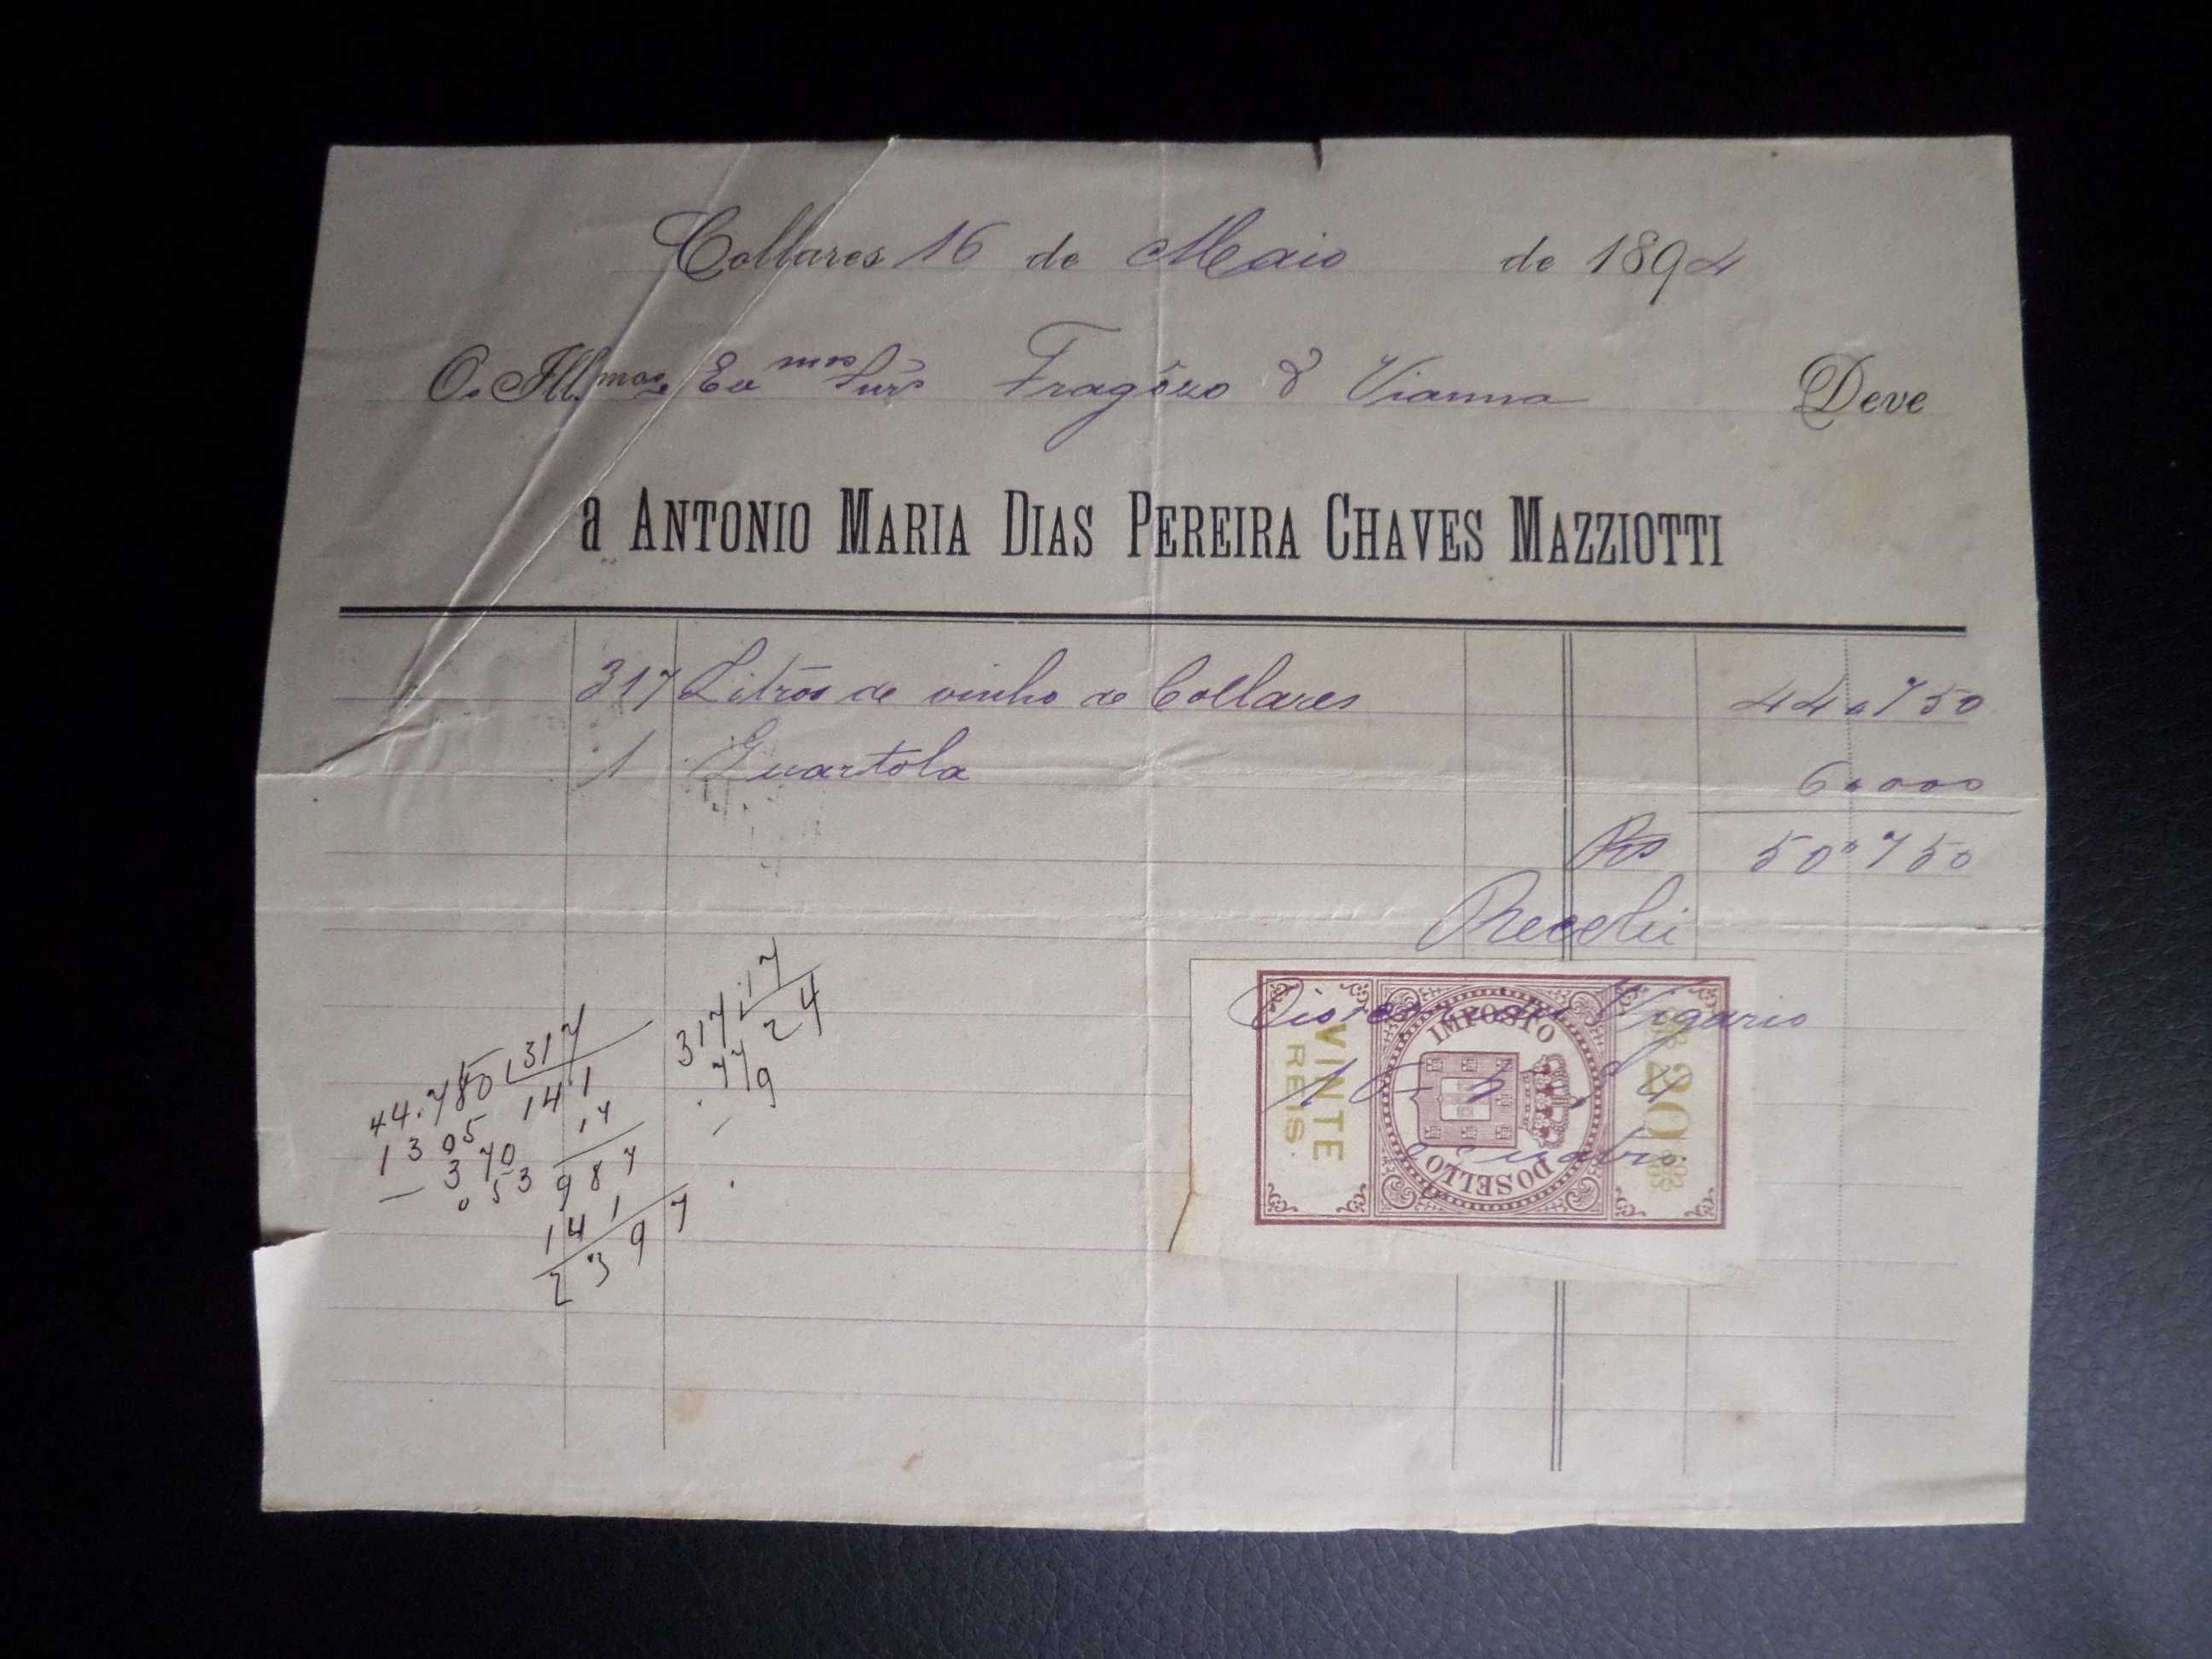 Collares 16 de Maio de 1894
O. Ill.mos Ex mos Snrs Fragôzo & Vianna Deve
a ANTONIO MARIA DIAS PEREIRA CHAVES MAZZIOTTI
317 Litros de vinho de Collares 44.750
1 Quartola 6.000
Rs 50"750
Recebi
Vigario
16 5 94
IMPOSTO DO SELLO
VINTE REIS.
20
317 17
779 24
44.750 317
1305 141
370 17
053 987
141
2397